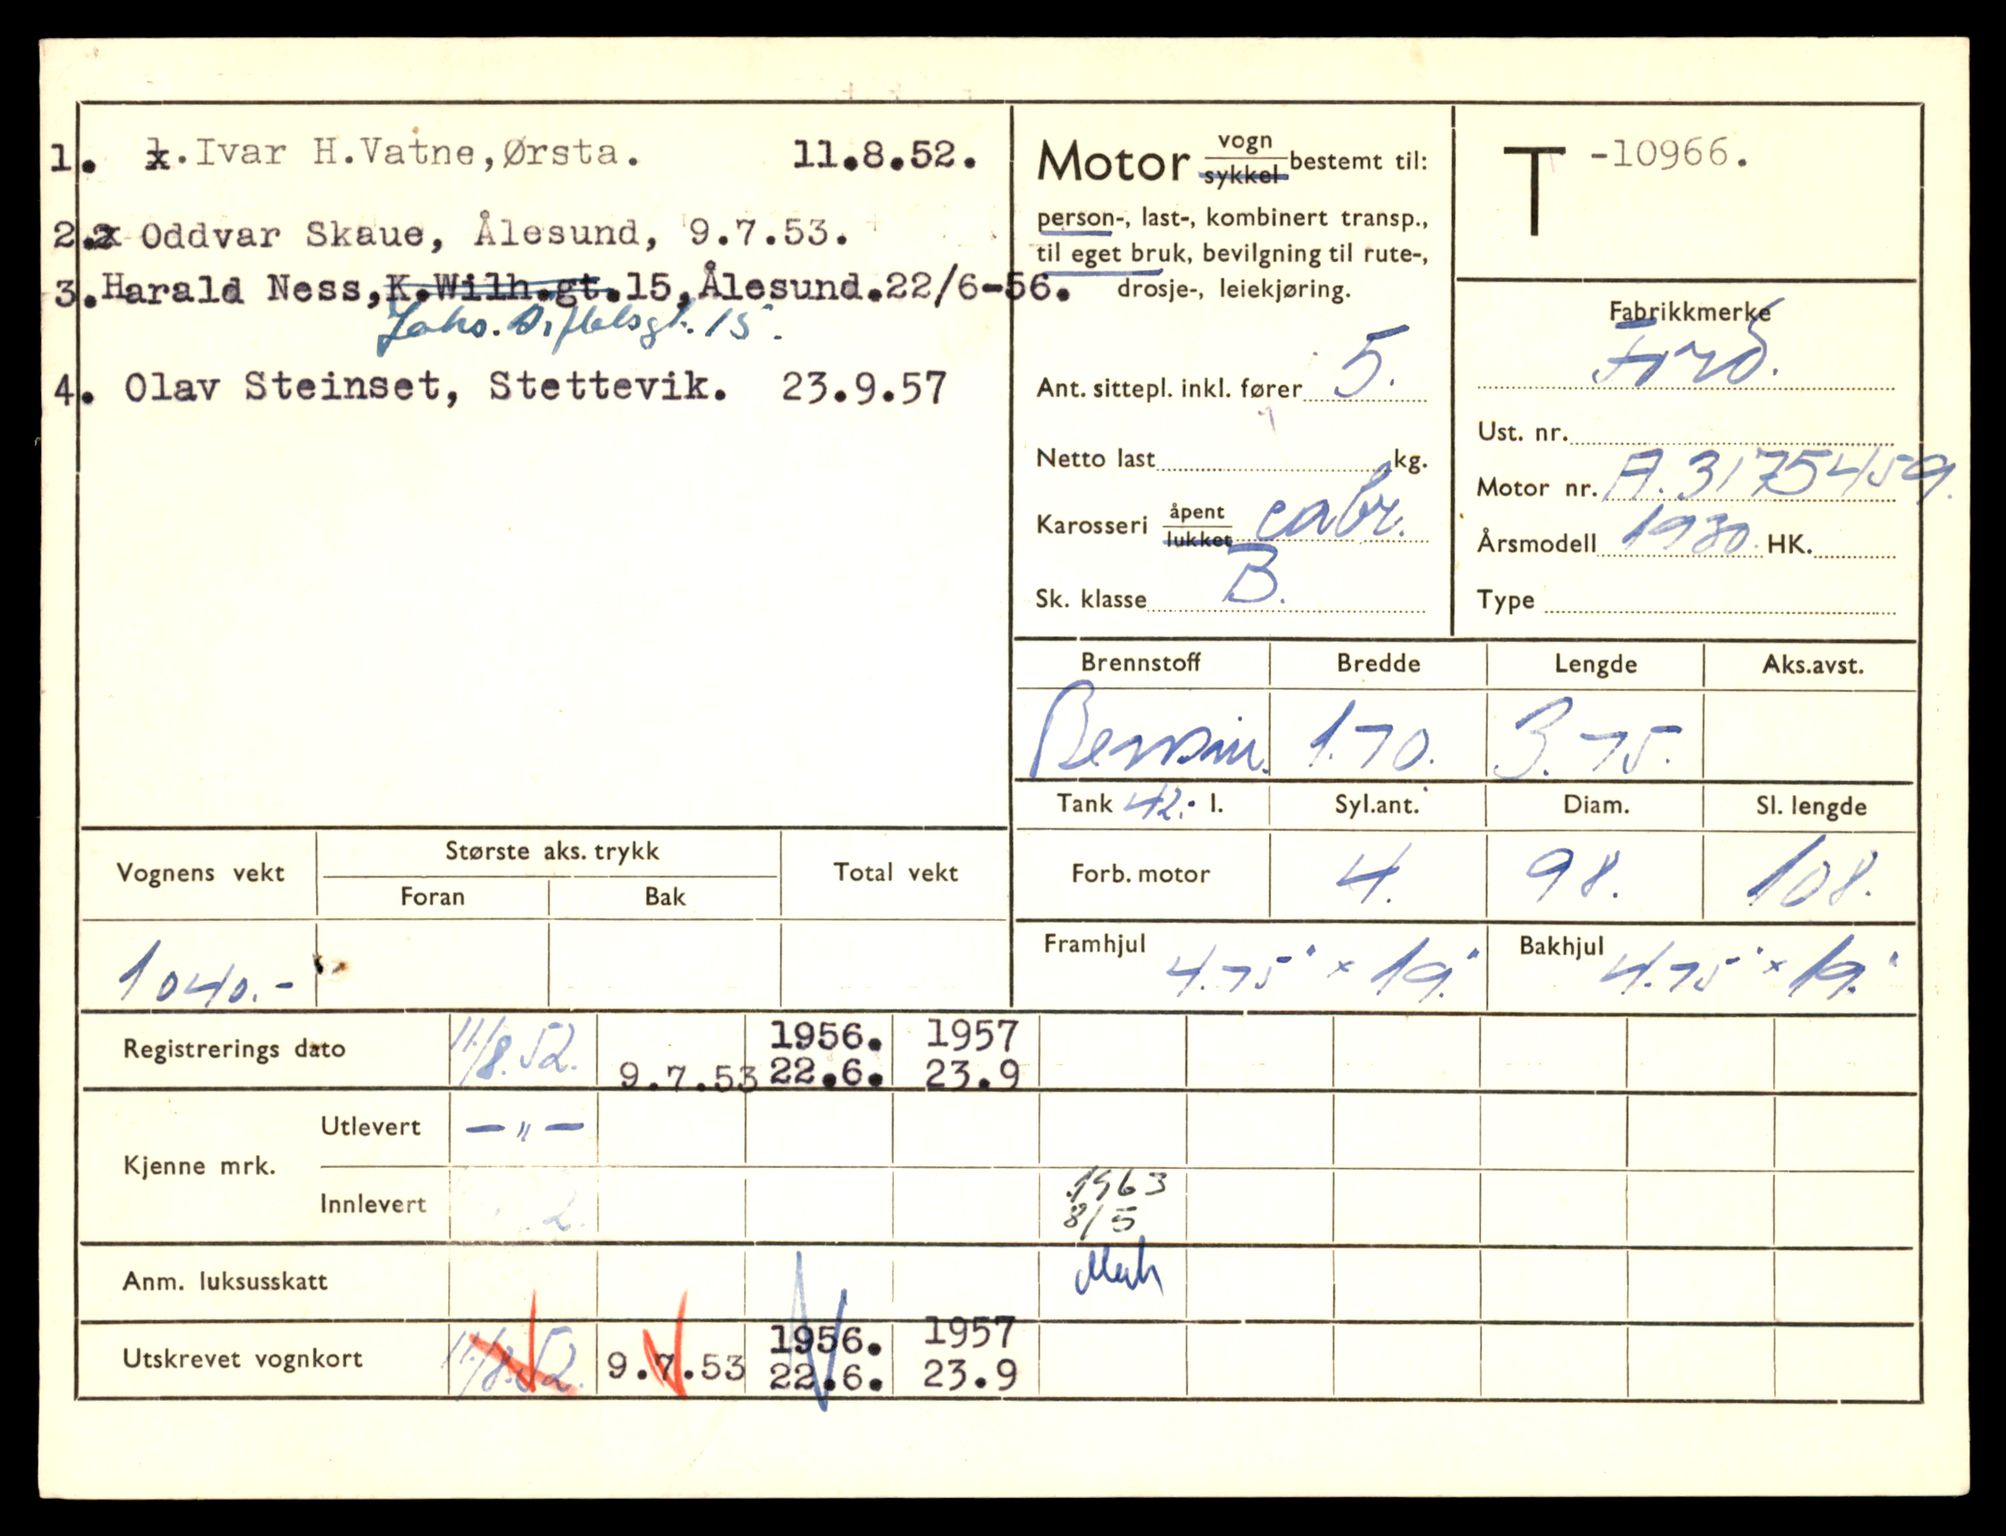 1. 1.Ivar H.Vatne,Ørsta. 11.8.52.
2. Oddvar Skaue, Ålesund, 9.7.53.
3.Harald Ness,K.Wilh.gt.15,Ålesund.22/6-56.
15.
4. Olav Steinset, Stettevik. 23.9.57
Motor vogn sykkel bestemt til:
person-, last-, kombinert transp.,
til eget bruk, bevilgning til rute-,
drosje-, leiekjøring.
Ant. sittepl. inkl. fører 5.
Netto last kg.
Karosseri åpent lukket cabr.
Sk. klasse B.
T -10966.
Fabrikkmerke
Ford.
Ust. nr.
Motor nr. A.3175459.
Årsmodell 1930. HK.
Type
Brennstoff Bredde Lengde Aks.avst.
Bensin. 1.70. 3.75.
Tank 42. l. Syl.ant. Diam. Sl. lengde
Forb. motor 4. 98. 108.
Framhjul 4.75" x 19." Bakhjul 4.75" x 19."
Vognens vekt Største aks. trykk Total vekt
Foran Bak
1040.-
Registrerings dato 11/8.52. 9.7.53 1956. 22.6. 1957 23.9
Kjenne mrk. Utlevert — " —
Innlevert 1963 8/5
Anm. luksusskatt
Utskrevet vognkort 11/8.52. 9.7.53 1956. 22.6. 1957 23.9